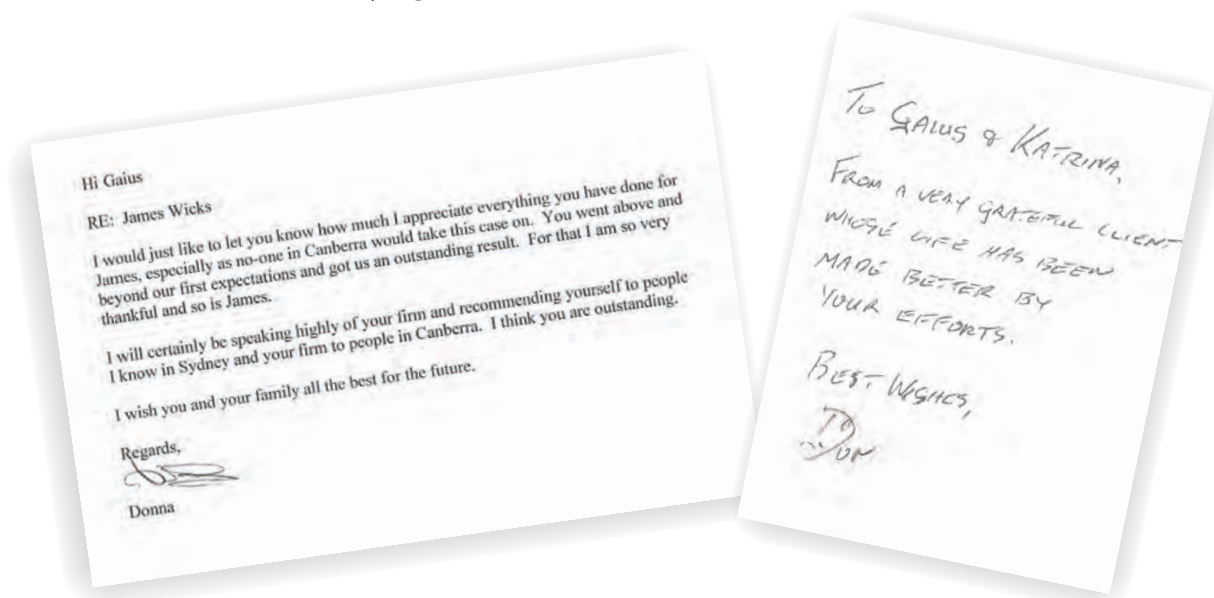 Hi Gaius
RE: James Wicks
I would just like to let you know how much I appreciate everything you have done for
James, especially as no-one in Canberra would take this case on. You went above and
beyond our first expectations and got us an outstanding result. For that I am so very
thankful and so is James.
I will certainly be speaking highly of your firm and recommending yourself to people
I know in Sydney and your firm to people in Canberra. I think you are outstanding.
I wish you and your family all the best for the future.
Regards,
Donna
To GAIUS & KATRINA,
FROM A VERY GRATEFUL CLIENT
WHOSE LIFE HAS BEEN
MADE BETTER BY
YOUR EFFORTS.
BEST WISHES,
DON